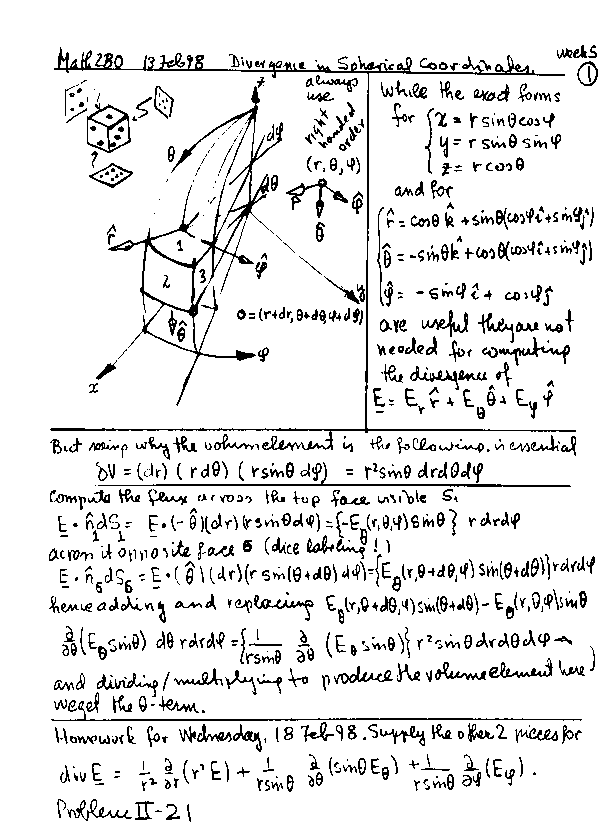 Math 280 13 Feb 98 Divergence in Spherical Coordinates. week 5
①
z
always
use
right
handed
order
(r, θ, φ)
θ
dφ
dθ
r̂
φ̂
θ̂
r̂
1
2
3
φ̂
θ̂
y
⊙=(r+dr, θ+dθ, φ+dφ)
x
φ
While the exact forms
for { x = r sinθ cosφ
y = r sinθ sinφ
z = r cosθ
and for
r̂ = cosθ k̂ + sinθ(cosφ î + sinφ ĵ)
θ̂ = -sinθ k̂ + cosθ(cosφ î + sinφ ĵ)
φ̂ = - sinφ î + cosφ ĵ
are useful they are not
needed for computing
the divergence of
E = E_r r̂ + E_θ θ̂ + E_φ φ̂
But seeing why the volume element is the following, is essential
δV = (dr) (r dθ) (r sinθ dφ) = r² sinθ dr dθ dφ
Compute the flux across the top face visible S₁
E • n̂₁ dS₁ = E • (-θ̂)(dr)(r sinθ dφ) = {-E_θ(r,θ,φ) sinθ} r dr dφ
across it opposite face 6 (dice labeling!)
E • n̂₆ dS₆ = E • (θ̂) (dr)(r sin(θ+dθ) dφ) = {E_θ(r,θ+dθ,φ) sin(θ+dθ)} r dr dφ
hence adding and replacing E_θ(r,θ+dθ,φ) sin(θ+dθ) - E_θ(r,θ,φ) sinθ
∂/∂θ (E_θ sinθ) dθ r dr dφ = {1/(r sinθ) ∂/∂θ (E_θ sinθ)} r² sinθ dr dθ dφ
and dividing/multiplying to produce the volume element here)
we get the θ-term.
Homework for Wednesday, 18 Feb-98. Supply the other 2 pieces for
div E = 1/r² ∂/∂r (r² E) + 1/(r sinθ) ∂/∂θ (sinθ E_θ) + 1/(r sinθ) ∂/∂φ (E_φ).
Problem II-21